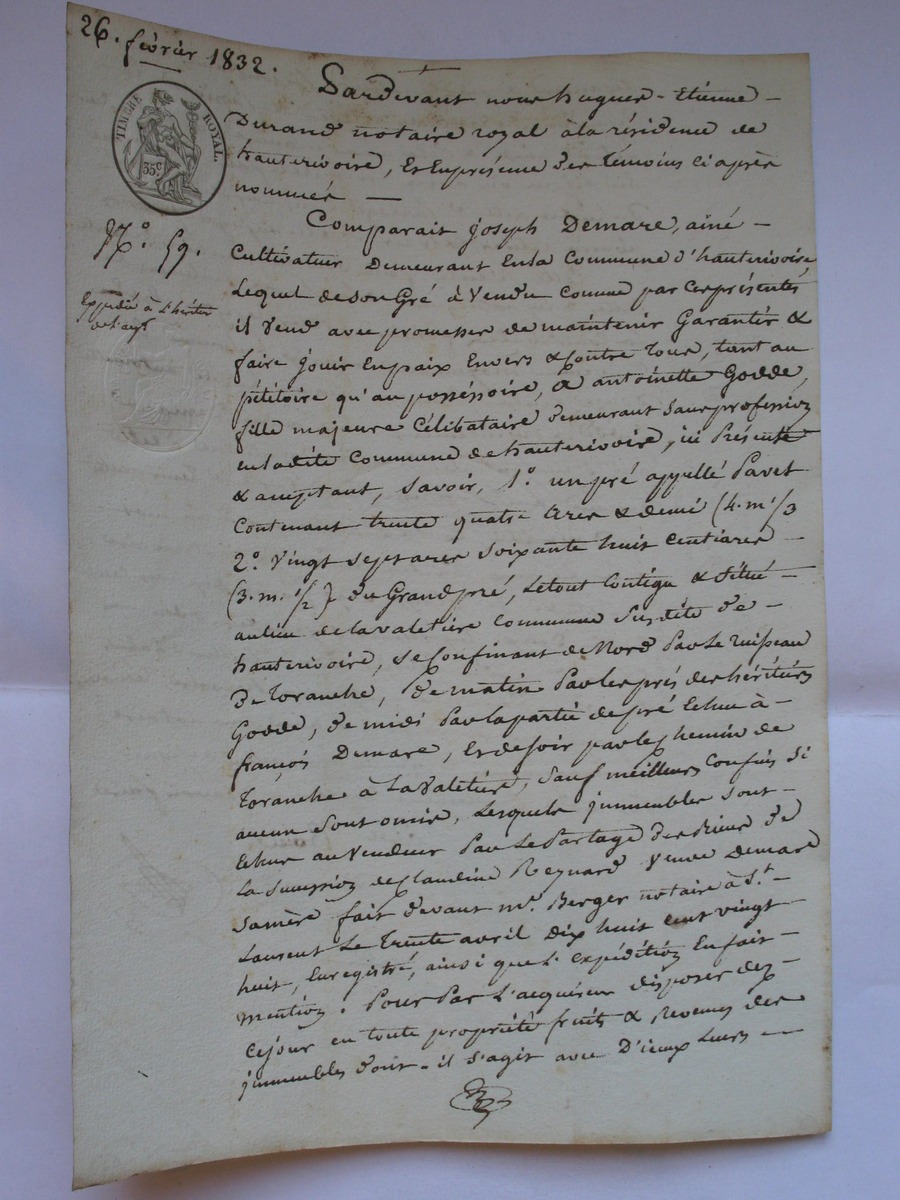 26. février 1832.
TIMBRE ROYAL.
35 c.
N.° 59.
Expédié à l'héritier
Pardevant nous hugues-Etienne
Durand notaire royal à la résidence de
hauterivoire, Et Enprésence des témoins ci après
nommés
Comparait joseph Demare, ainé
Cultivateur Demeurant Enla Commune d'hauterivoire
Lequel de son Gré à Vendu comme par Ces présentes
il Vend avec promesses de maintenir Garantir &
faire jouir Enpaix Envers & Contre tous, tant au
pétitoire qu'au posséssoire, à antoinette Godde,
fille majeure Célibataire demeurant Sans profession
enladite Commune de hauterivoire, ici Présente
& acceptant, Savoir, 1.° un pré appellé Pavet
Contenant trente quatre Ares & demi (4. m. 1/3
2.° Vingt sept ares Soixante huit Centiares
(3. m. 1/2) du Grand pré, Letout Contigu & Situé
aulieu de lavaletière Commune Susdite de
hauterivoire, Se Confinant de Nord Par Le ruisseau
de toranche, de matin Par Les prés des héritiers
Godde, de midi Par la partie de pré Echue à
françois Demare, Et de soir par le Chemin de
toranche à LaValetière, Sauf meilleurs Confins Si
aucun Sont omis, Lesquels immeubles Sont
Echus au Vendeur Par Le Partage des Biens de
La Succession de Claudine Reynard Veuve Demare
Samère fait devant m.e Berger notaire à S.t
Laurent Le trente avril Dix huit cent vingt
huit, Enregistré, ainsi que L'Expédition En fait
mention. Pour Par L'acquéreur disposer dès
Cejour en toute propriété fruits & Revenus des
immeubles dont il s'agit avec D'iceux Leurs